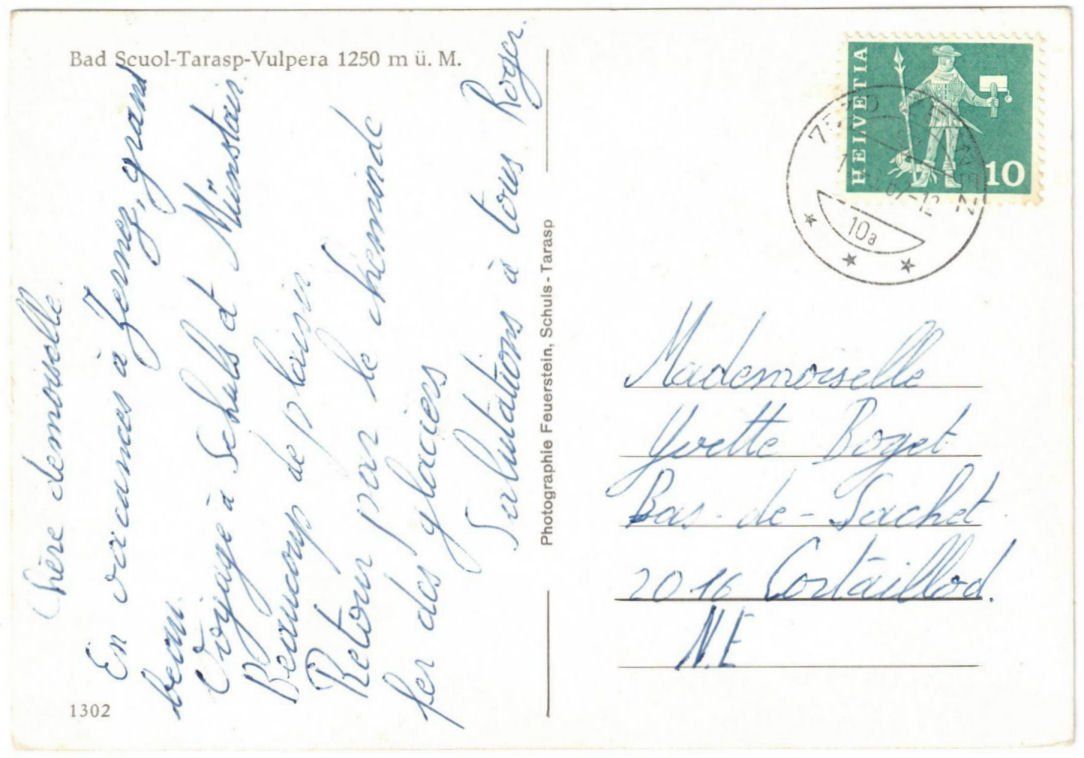 Bad Scuol-Tarasp-Vulpera 1250 m ü. M.
Chère demoiselle.
En vacances à Zernez, grand
beau.
Voyage à Schuls et Münstair.
Beaucoup de plaisir
Retour par le chemin de
fer des glaciers
Salutations à tous Roger.
1302
Photographie Feuerstein, Schuls-Tarasp
HELVETIA
10
67-12
10a
Mademoiselle
Yvette Boget
Bas-de-Sachet
2016 Cortaillod.
N.E